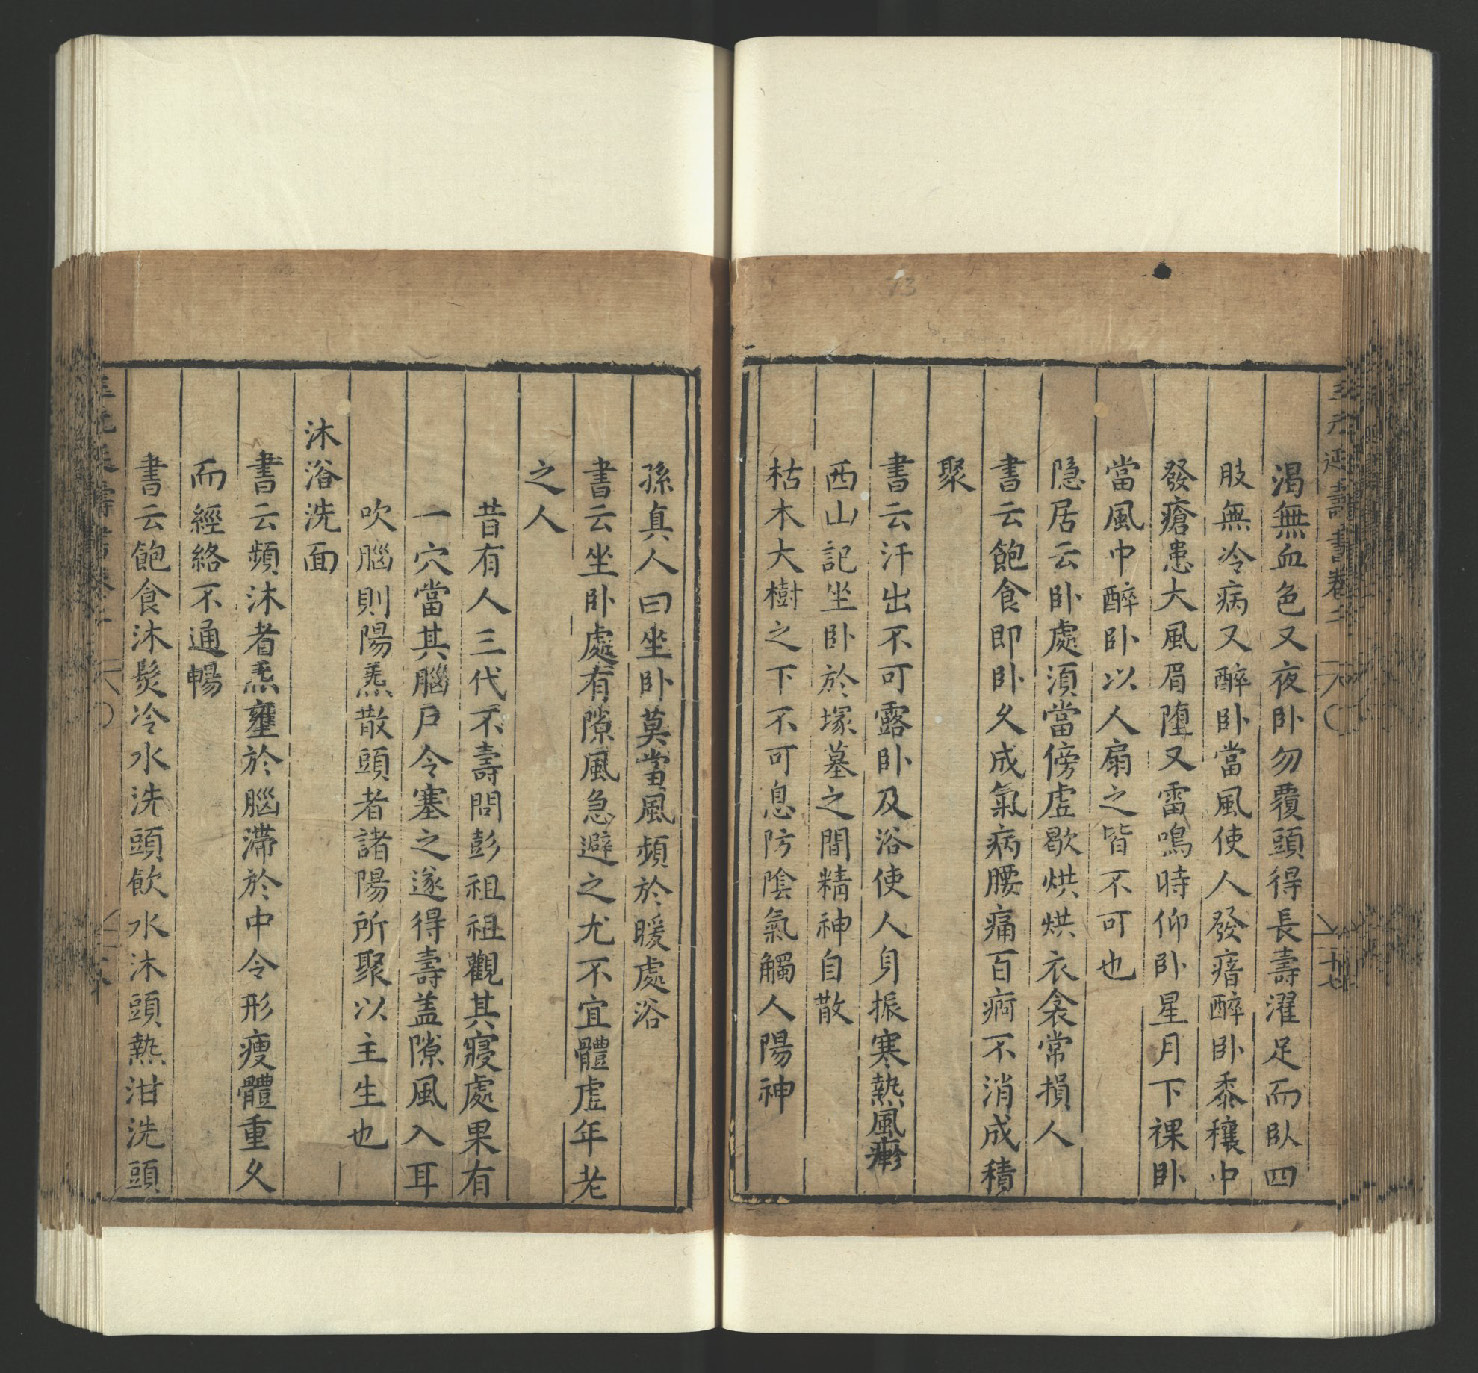 渴無血色又夜卧勿覆頭得長壽濯足而卧四
肢無冷病又醉卧當風使人發瘖醉卧黍穰中
發瘡患大風眉墮又雷鳴時仰卧星月下裸卧
當風中醉卧以人扇之皆不可也
隐居云卧處須當傍虚歇烘烘衣衾常損人
書云飽食即卧久成氣病腰痛百痾不消成積
聚
書云汗出不可露卧及浴使人身振寒熱風癣
西山記坐卧於塚墓之間精神自散
枯木大樹之下不可息防陰氣觸人陽神
孫真人曰坐卧莫當風頻於暖處浴
書云坐卧處有隙風急避之尤不宜體虚年老
之人
昔有人三代不壽問彭祖祖觀其寢處果有
一穴當其腦戶令塞之遂得壽盖隙風入耳
吹腦則陽炁散頭者諸陽所聚以主生也
沐浴洗面
書云頻沐者炁壅於腦滞於中令形瘦體重久
而經絡不通暢
書云飽食沐髮冷水洗頭飲水沐頭熱泔洗頭